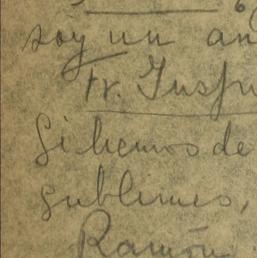 soy un an
Fr. Inspi
Si hemos de
sublimes,
Ramón